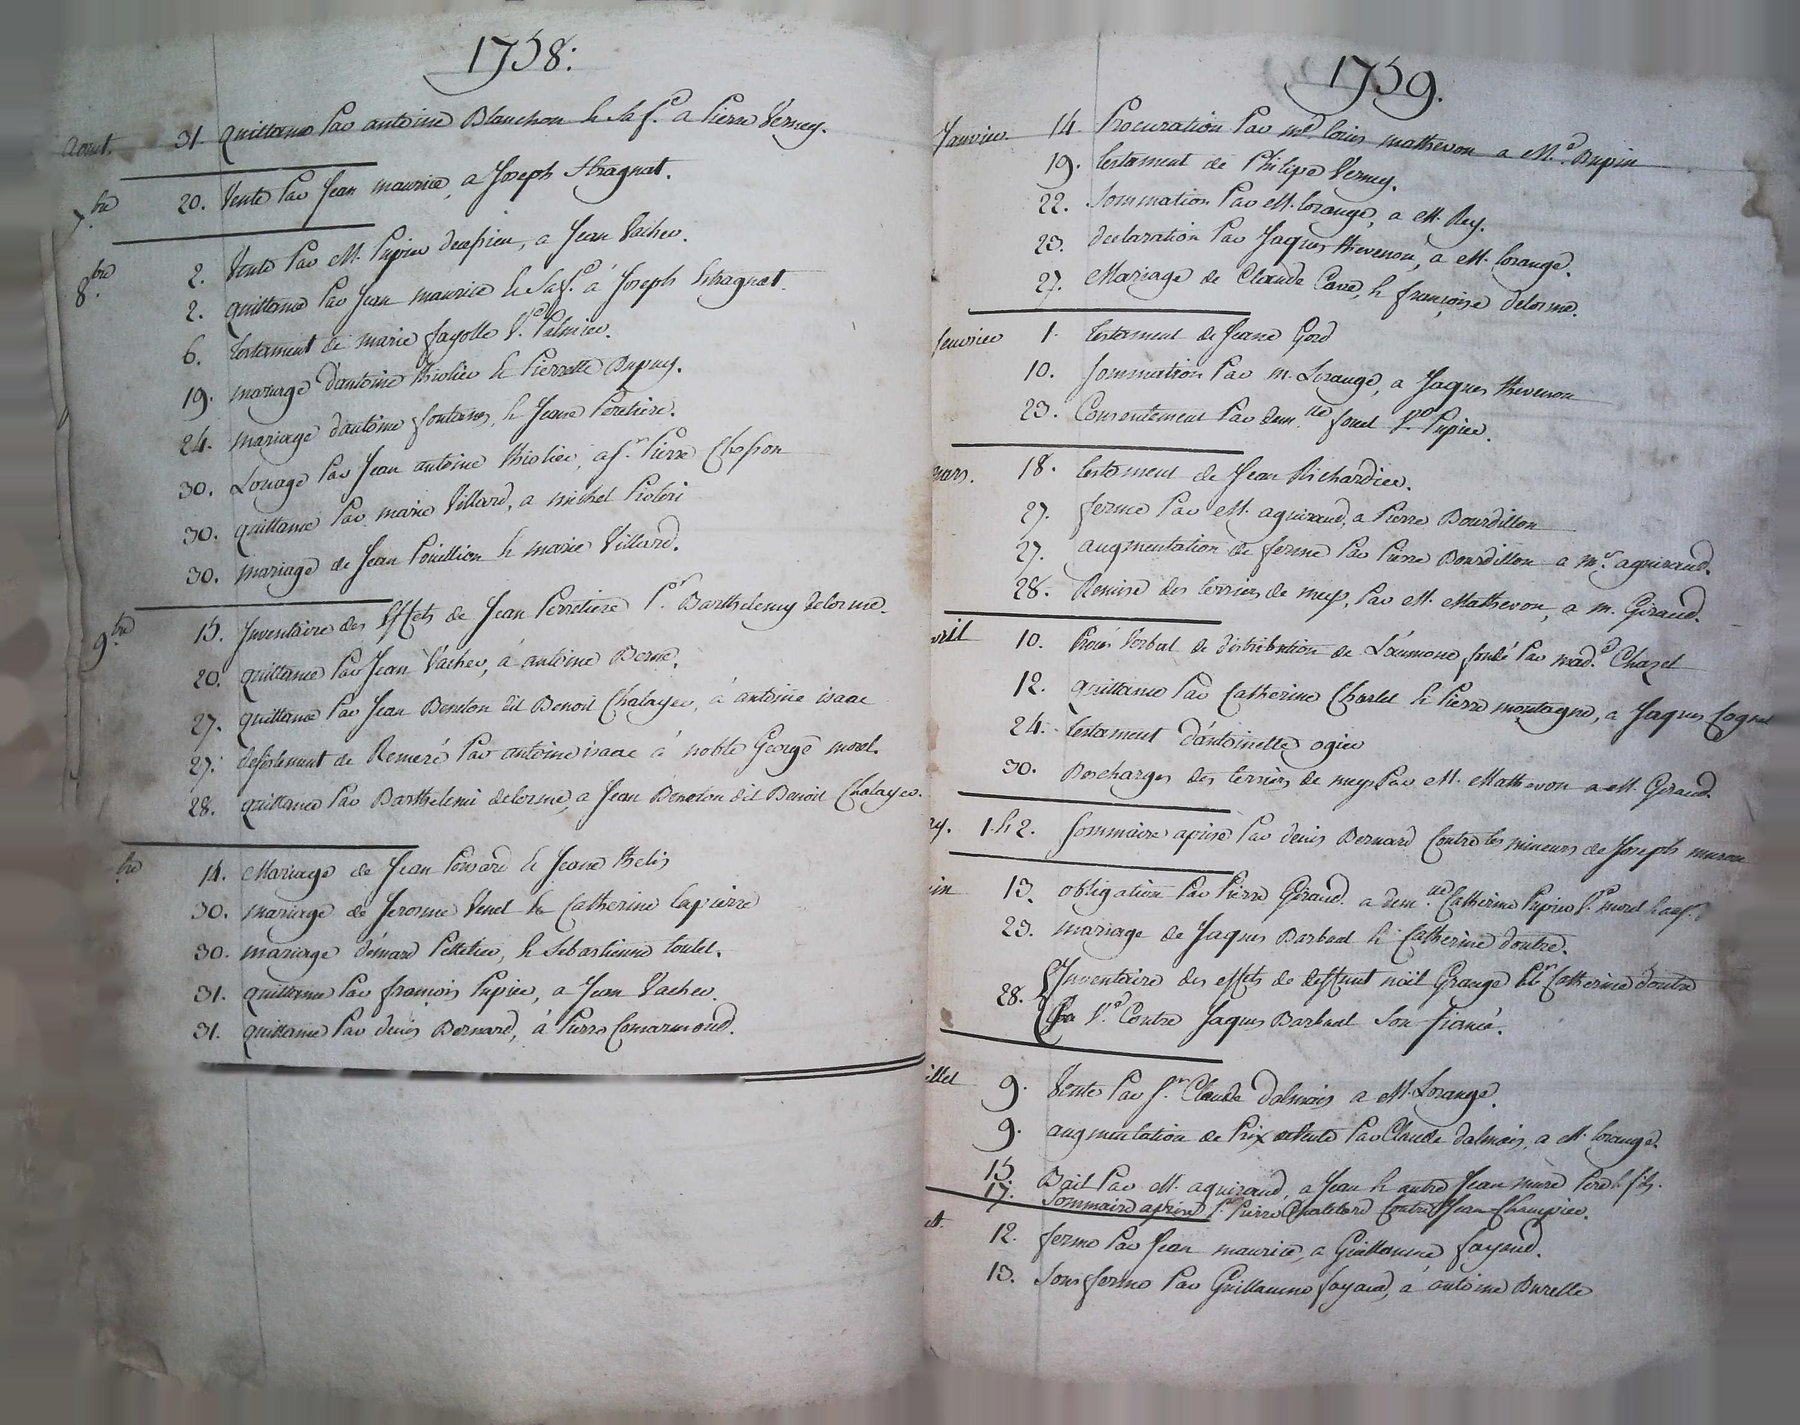 1758:
Aout. 31. quittance Par antoine Blanchon & Sa f.e a Pierre Verney.
7.bre 20. Vente Par Jean maurice, a Joseph Stragnat.
8.bre 2. Vente Par M. Pupier decussieu, a Jean Vacher.
2. quittance Par Jean maurice & Sa f.e à Joseph Stragnat.
6. testament de marie fayolle V.e Palmier.
19. mariage d'antoine thiolier & Pierrette Dupuy.
24. mariage d'antoine fontanes, & Jeane Peretiere.
30. Louage Par Jean antoine thiolier, a s.r Pierre Chosson
30. quittance Par marie Villard, a michel
30. mariage de Jean Pouillion & marie Villard.
9.bre 15. Inventaire des Effets de Jean Perretiere P.r Barthelemy delorme.
20. quittance Par Jean Vacher, à antoine Berne.
27. quittance Par Jean Beneton dit Benoit Chalayer, à antoine isaac
27. desistement de Remeré Par antoine isaac à noble George morel.
28. quittance Par Barthelemi delorme, a Jean Beneton dit Benoit Chalayer.
bre 14. Mariage de Jean Ponsard & Jeane thelis
30. mariage de Jerosme Venel & Catherine lapierre
30. mariage d'émard Pelletier, & Sebastienne toulet.
31. quittance Par françois Pupier, a Jean Vacher.
31. quittance Par denis Bernard, à Pierre Comarmond.
1759.
Janvier 14. Procuration Par m.e louis mathevon a M.e Dupin
19. testament de Philipe Verney.
22. Sommation Par M. lorange, a M. Rey.
23. declaration Par Jaques thevenon, à M. lorange.
27. Mariage de Claude Cave, & françoise delorme.
fevrier 1. testament de Jeane Gord
10. Sommation Par m. Lorange, a Jaques thevenon
23. Consentement Par dem.lle fonel V.e Pupier.
mars. 18. testament de Jean Richardier.
27. ferme Par M. aguiraud, a Pierre Bourdillon
27. augmentation de ferme Par Pierre Bourdillon a m.r aguiraud.
28. Remise des terriers de meys, Par M. Mathevon, a m. Giraud.
vril 10. Procés Verbal de distribution de L'aumone fondé Par mad.e Chazel
12. quittance Par Catherine Charlet & Pierre montagne, a Jaques Cognet
24. testament d'antoinette ogier
30. Decharges des terriers de meys Par M. Mathevon a M. Giraud.
ay. 1. & 2. Sommaire aprise Par denis Bernard Contre les mineurs de Joseph
in 13. obligation Par Pierre Giraud a dem.lle Catherine Pupier V.e morel
23. mariage de Jaques Barbaud & Catherine doutre.
28. Inventaire des effets de deffunt noël Grange P.r Catherine doutre
Sa V.e Contre Jaques Barbaud Son fiancé.
illet 9. Vente Par s.r Claude dalmais a M. Lorange.
9. augmentation de Prix de Vente Par Claude dalmais, a M. lorange.
15. Bail Par M. aguiraud, a Jean & autre Jean mure Pere & fils.
17. Sommaire aprise P.r Pierre Chatelard Contre Jean Champier.
ut. 12. ferme Par Jean maurice, a Guillaume fayard.
13. Sousferme Par Guillaume fayard, a antoine Burelle